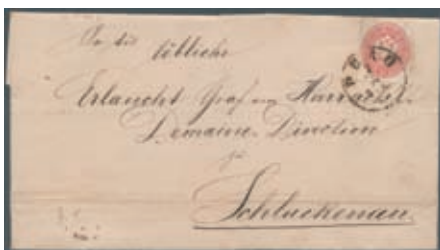 An die löbliche
Erlaucht Graf von Harrach
Domaine-Direction
zu
Schluckenau